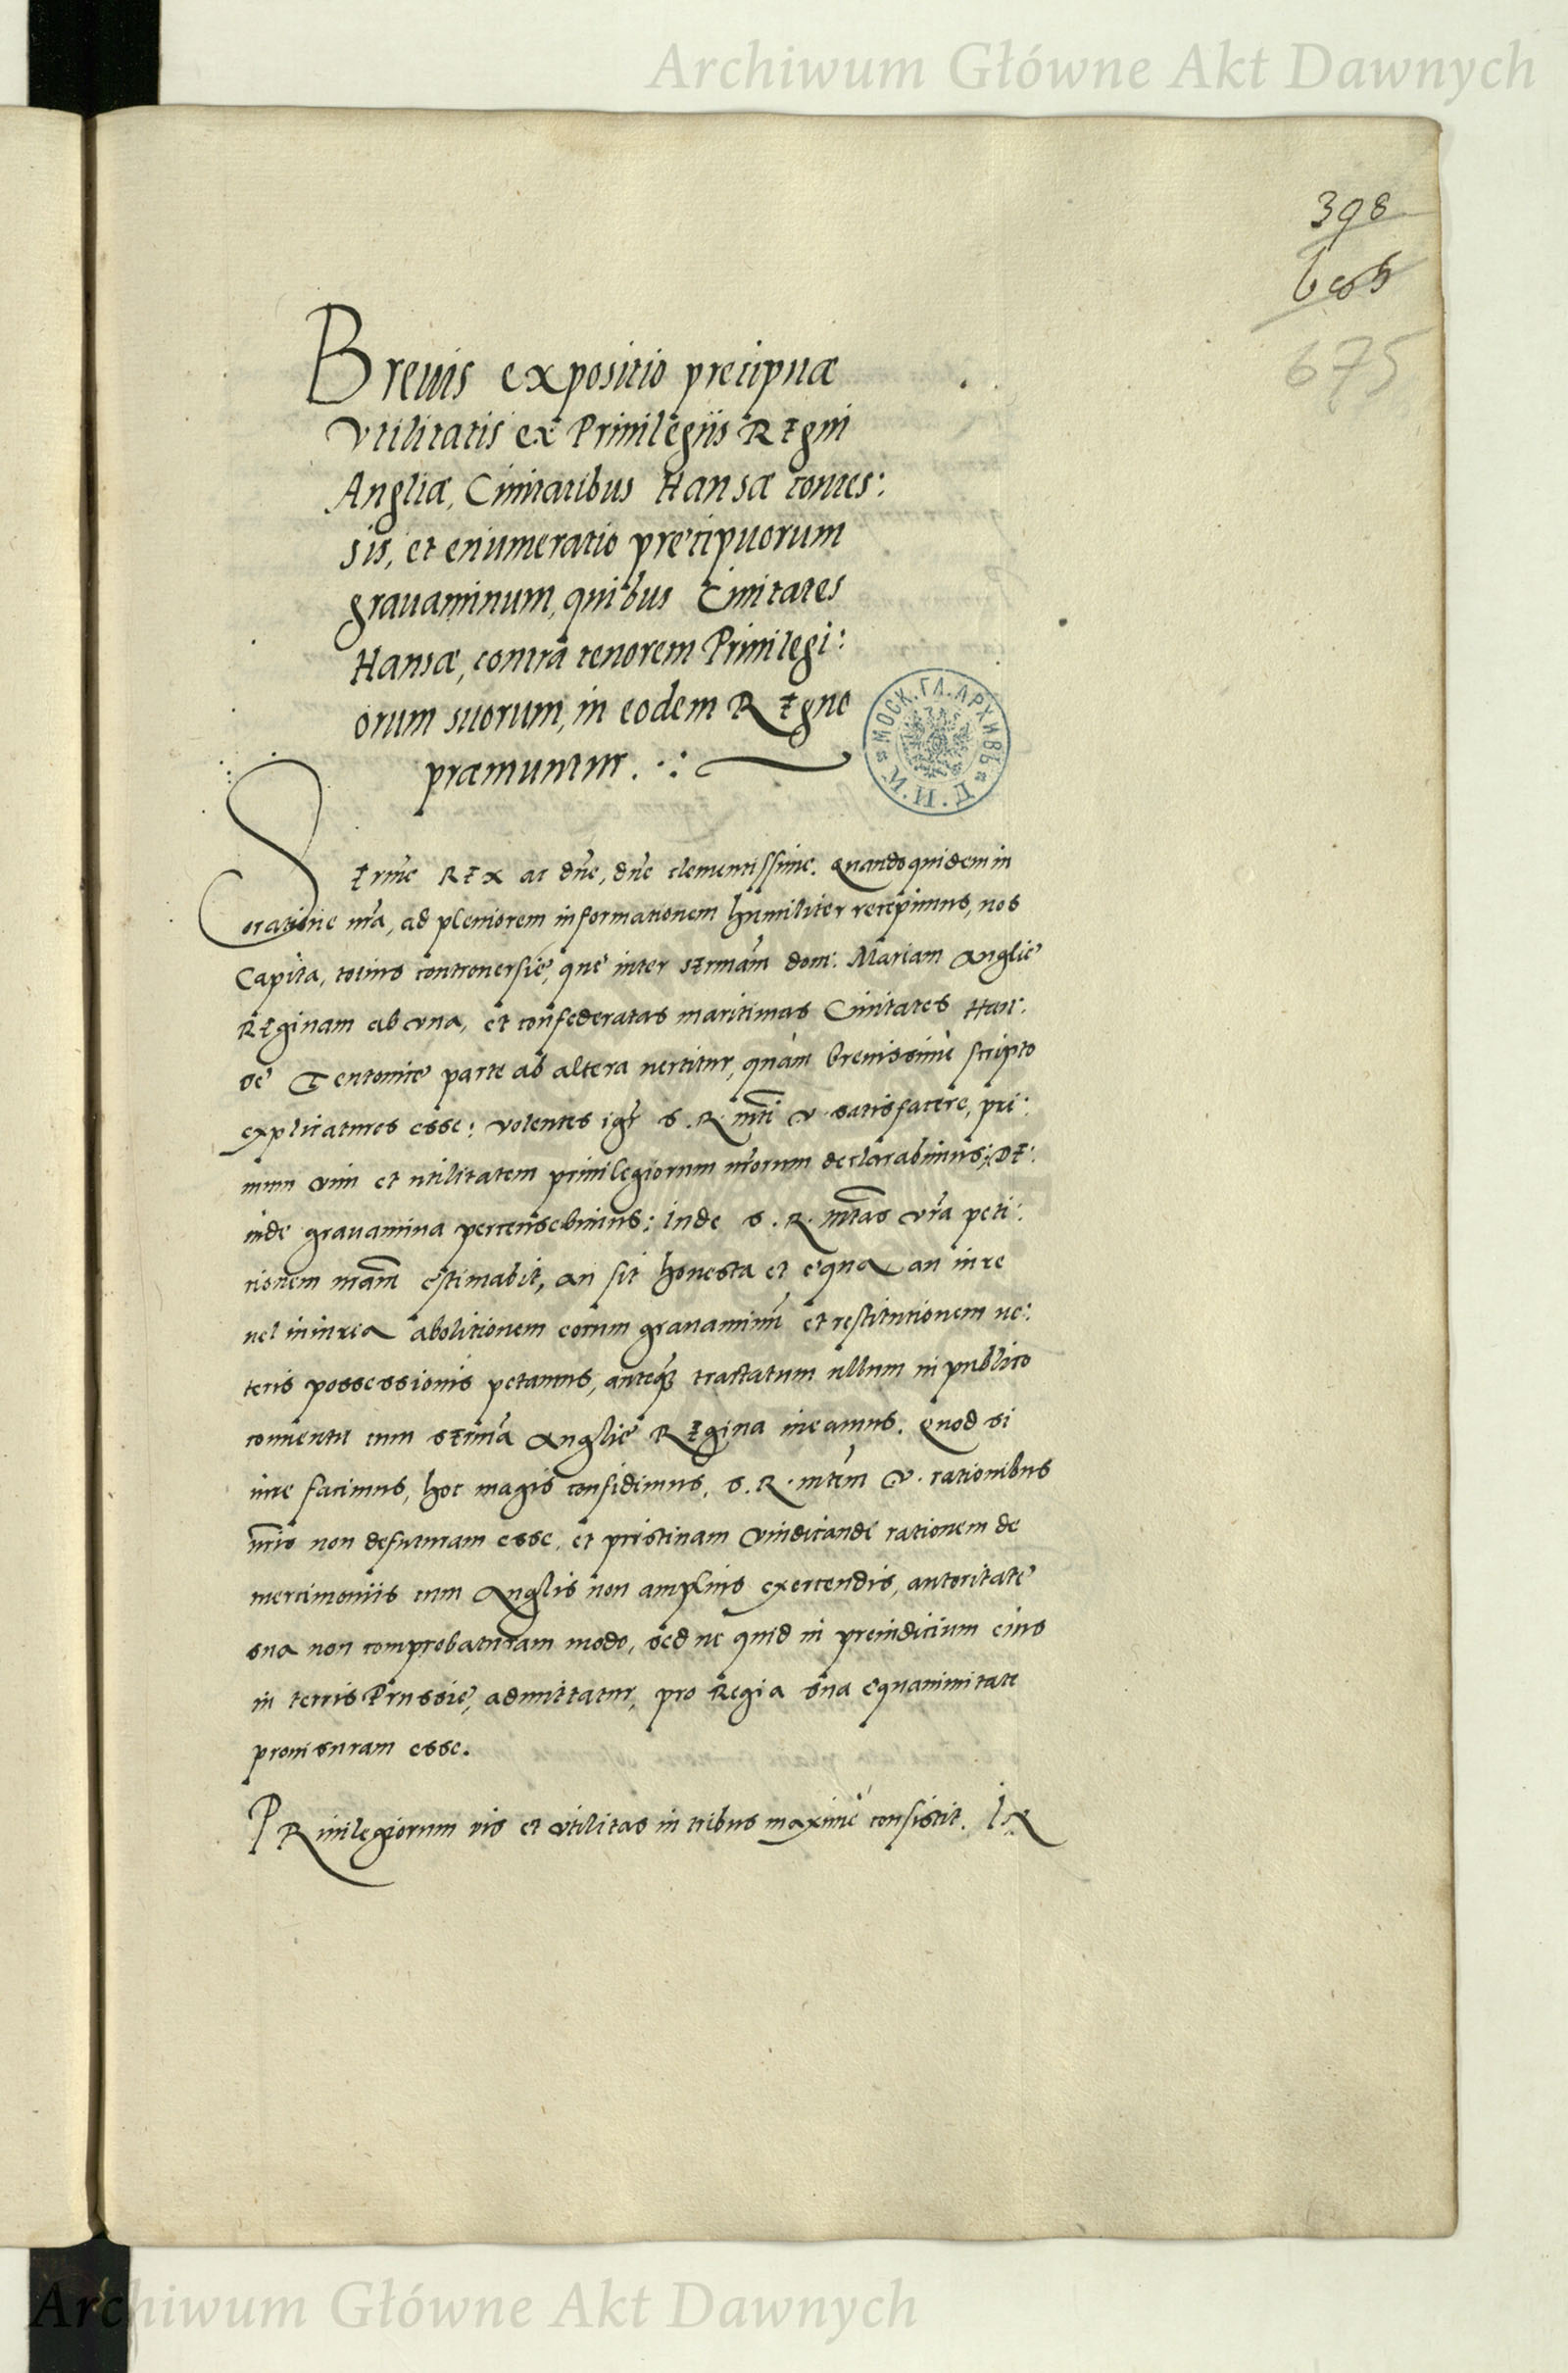 Archiwum Główne Akt Dawnych
398
675
Breuis expositio precipuæ
Vtilitatis ex Priuilegijs REgni
Angliæ, Ciuitatibus Hansæ conces:
sis, et enumeratio precipuorum
grauaminum, quibus Ciuitates
Hansæ, contra tenorem Priuilegi:
orum suorum, in eodem REgno
præmuntur.
МОСК. ГЛ. АРХИВЪ
SErme REx ac dne, dne clementissime. Quandoquidem in
oratione nra, ad pleniorem informationem humiliter recepimus, nos
Capita, totius controuersie, que inter sermam dom: Mariam Anglie
REginam ab vna, et confederatas maritimas Ciuitates Han:
se Teutonice parte ab altera uertitur, quàm breuissime scripto
explicatures esse: volentes igr S. R. mti v. satisfacere, pri:
mum vim et utilitatem priuilegiorum nrorum declarabimus; DE:
inde grauamina percensebimus: Inde S. R. mtas vra peti:
tionem nram estimabit, an sit honesta et equa an iure
uel iniurea abolitionem eorum grauaminu et restitutionem ue:
teris possessionis petamus, anteq tractatum ullum in publico
conuentu cum serma Anglie REgina ineamus. Quod si
iure facimus, hoc magis confidimus, S. R. mtem V. rationibus
nris non defuturam esse, et pristinam vindicande rationem de
mercimonijs cum Anglis non amplius exercendis, autoritate
sua non comprobaturam modo, sed ne quid in preiudicium eius
in terris Prussie, admittatur, pro Regia sua equanimitate
prouisuram esse.
PRiuilegiorum vis et vtilitas in tribus maxime consistit. IN
Archiwum Główne Akt Dawnych